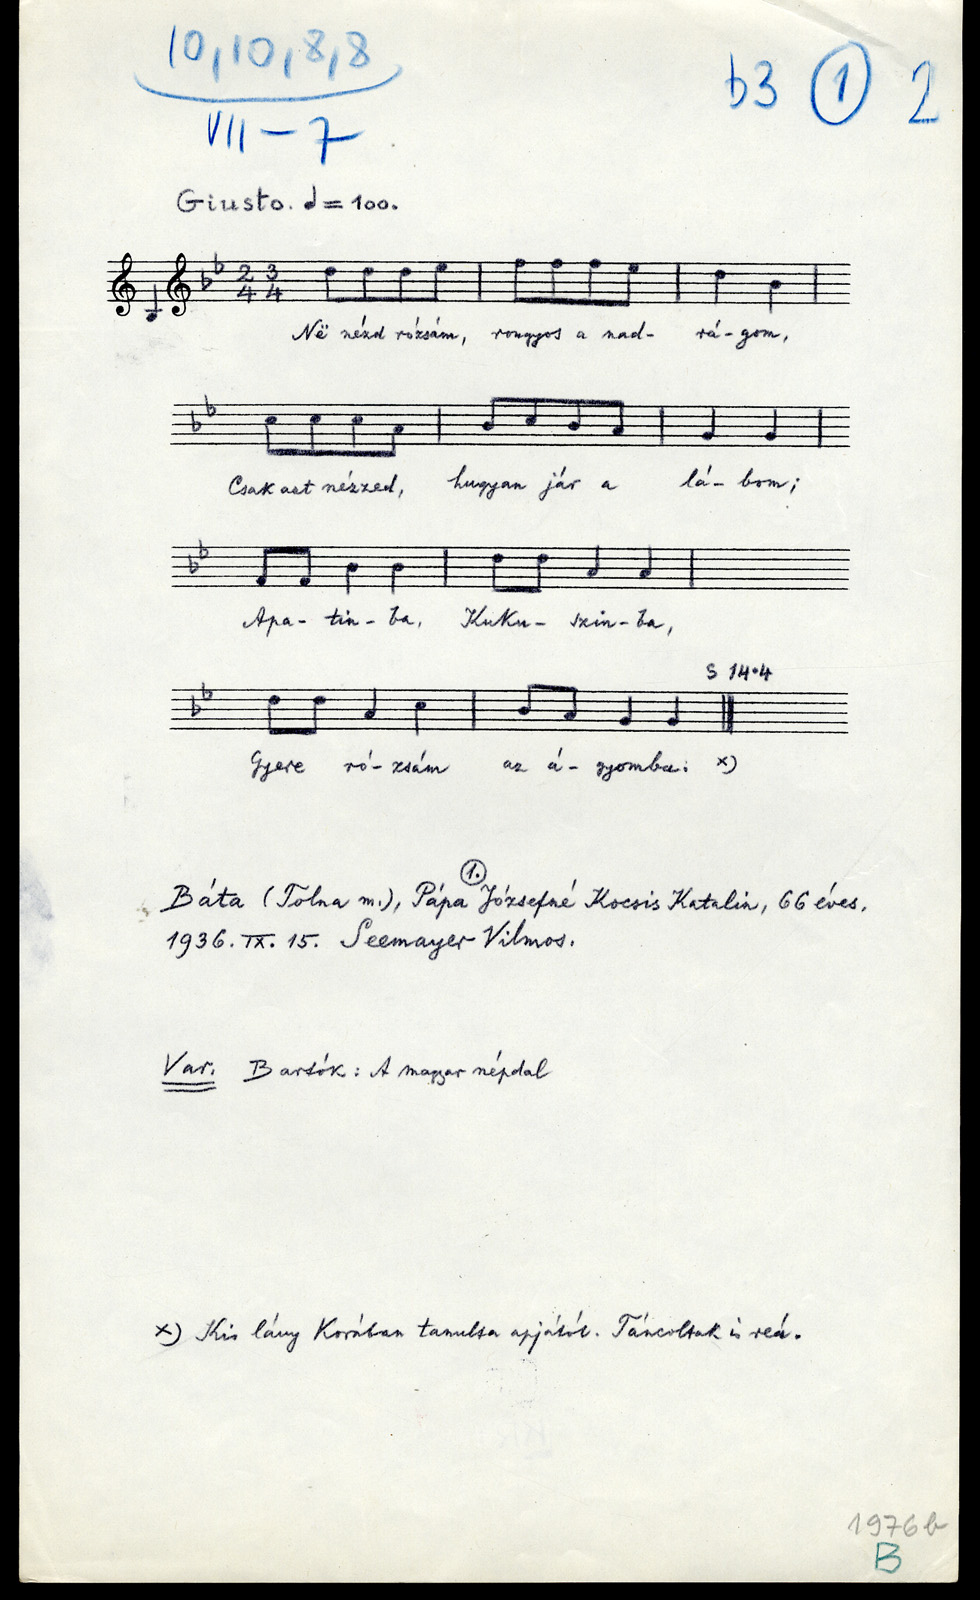 10,10,8,8
VII-7
b3 1 2
Giusto. = 100.
2 3
4 4
Në nézd rózsám, rongyos a nad- rá-gom,
Csak azt nézzed, hugyan jár a lá-bom;
Apa-tin-ba, Kuku-szin-ba,
S 14.4
Gyere ró-zsám az á-gyomba: x)
1.
Báta (Tolna m.), Pápa Józsefné Kocsis Katalin, 66 éves,
1936. IX. 15. Seemayer Vilmos.
Var. Bartók: A magyar népdal
x) Kis lány korában tanulta apjától. Táncoltak is reá.
1976 b
B